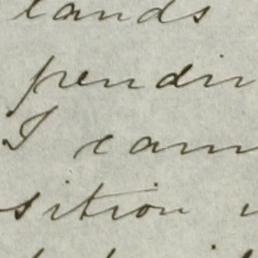 lands
pendin
I cam
sition